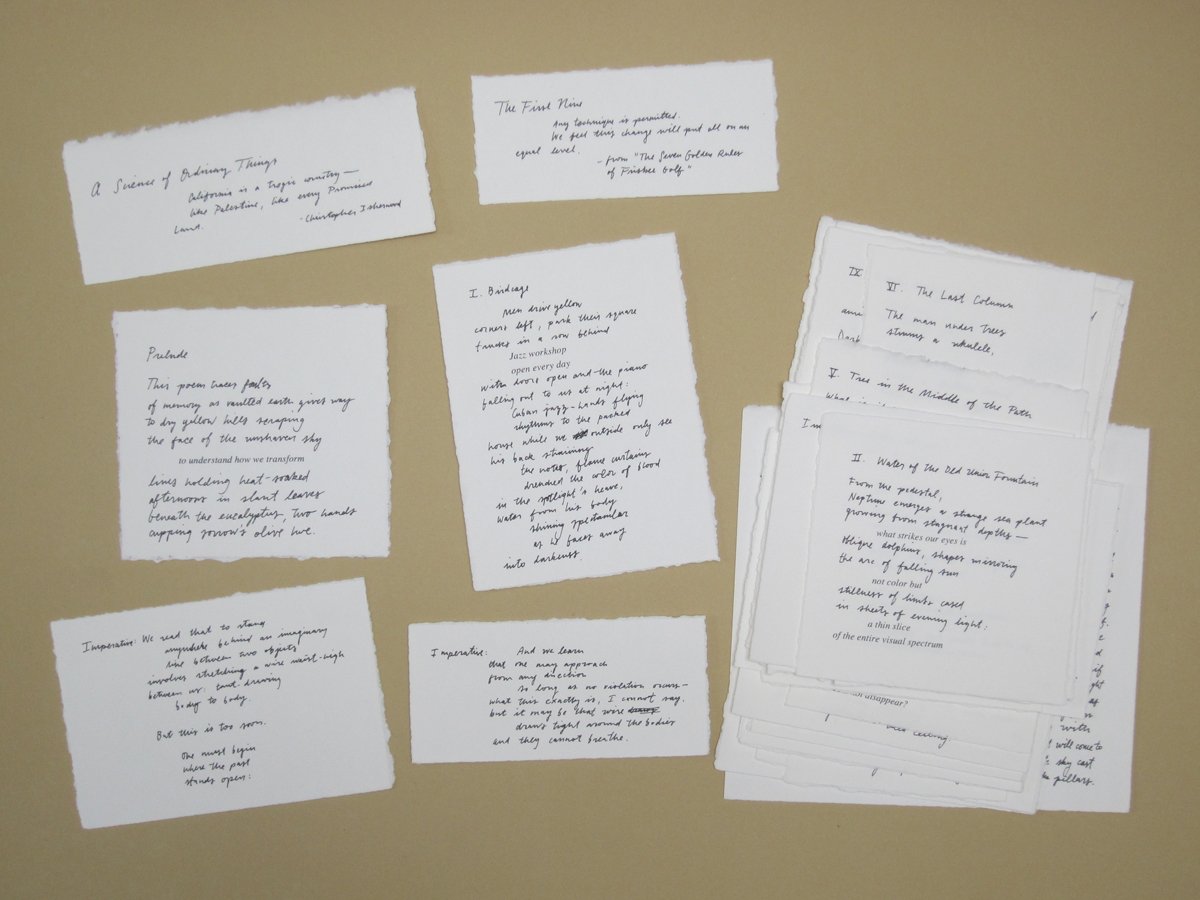 A Science of Ordinary Things
California is a tragic country—
like Palestine, like every Promised
Land.
-Christopher Isherwood
The First Nine
Any technique is permitted.
We feel this change will put all on an
equal level.
- from "The Seven Golden Rules
of Frisbee Golf"
Prelude
This poem traces faults
of memory as vaulted earth gives way
to dry yellow hills scraping
the face of the unshaven sky
to understand how we transform
lines holding heat-soaked
afternoons in slant leaves
beneath the eucalyptus, two hands
cupping sorrow's olive hue.
I. Birdcage
Men drive yellow
corners left, park their square
trucks in a row behind
Jazz workshop
open every day
with doors open and the piano
falling out to us at night:
Cuban jazz-hands flying
rhythms to the packed
house while we outside only see
his back straining
the notes, flame curtains
drenched the color of blood
in the spotlight's heave,
water from his body
shining spectacular
as he faces away
into darkness.
Imperative: We read that to stand
anywhere behind an imaginary
line between two objects
involves stretching a wire waist-high
between us: taut-drawing
body to body.
But this is too soon.
One must begin
where the past
stands open:
Imperative: And we learn
that one may approach
from any direction
so long as no violation occurs—
what this exactly is, I cannot say.
but it may be that wire
draws tight around the bodies
and they cannot breathe.
IV
VI. The Last Column
The man under trees
strums a ukulele,
Dark
V. Tree in the Middle of the Path
II. Water of the Old Union Fountain
From the pedestal,
Neptune emerges a strange sea plant
growing from stagnant depths—
what strikes our eyes is
Oblique dolphins, shapes mirroring
the arc of falling sun
not color but
stillness of limbs cased
in sheets of evening light:
a thin slice
of the entire visual spectrum
disappear?
ceiling.
if
as
with
will come to
sky cast
pillars.